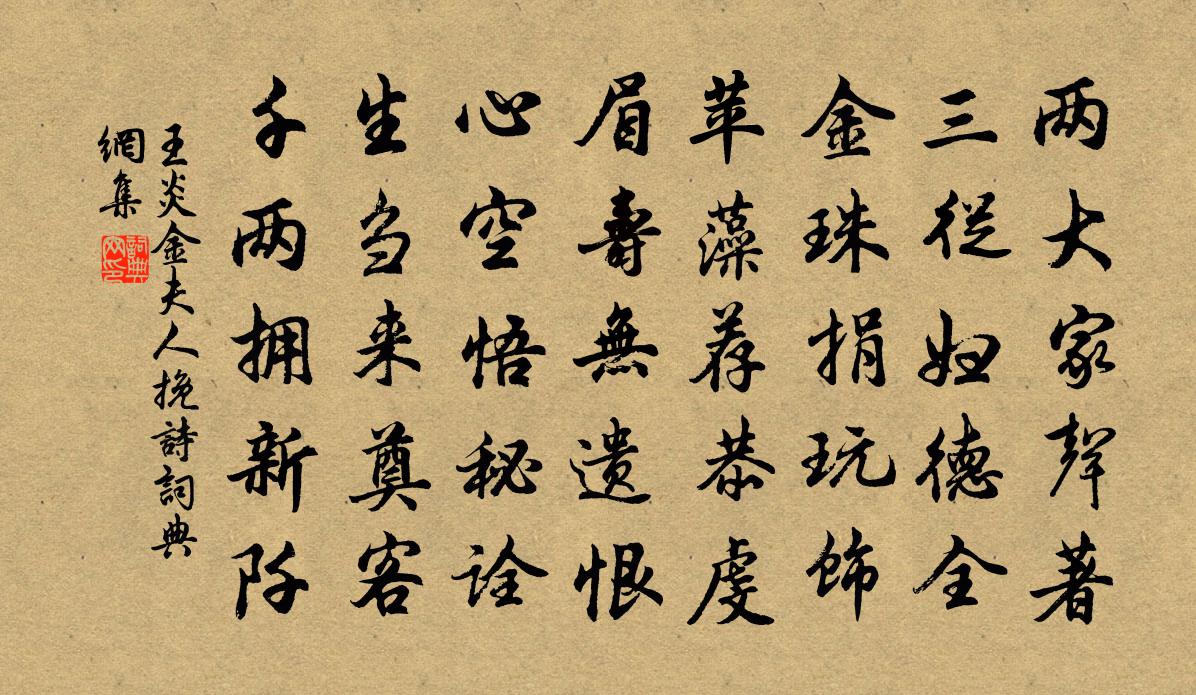 两大家聲著
三從妇德全
金珠捐玩饰
苹藻荐恭虔
眉壽無遗恨
心空悟秘诠
生刍来奠客
千两拥新阡
王炎金夫人挽詩詞典
網集
詞典
网印